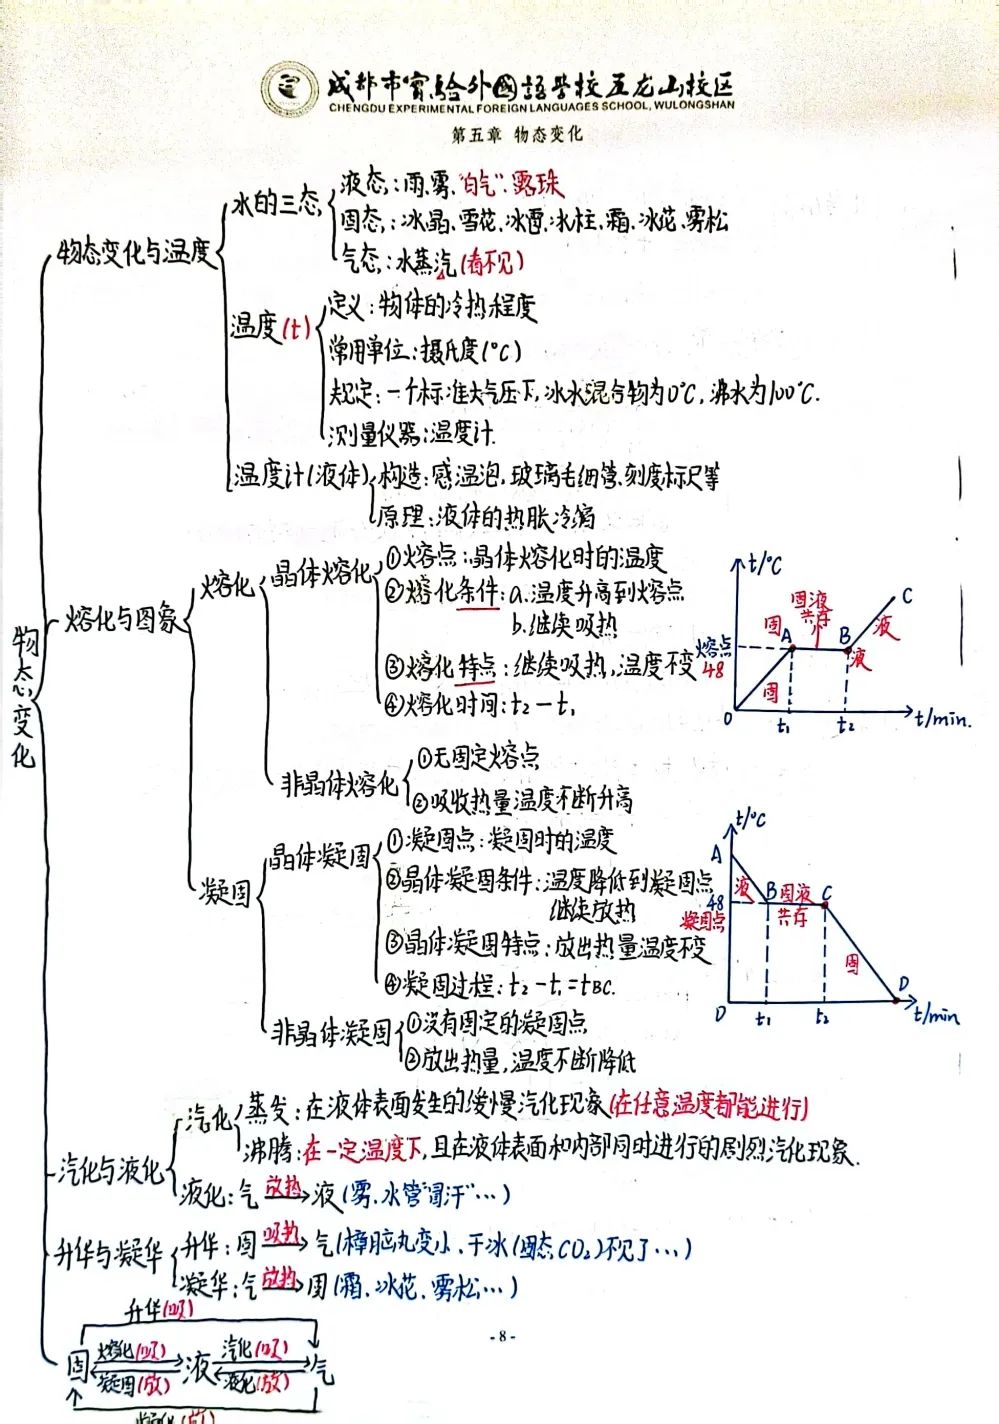 成都市实验外国语学校五龙山校区
CHENGDU EXPERIMENTAL FOREIGN LANGUAGES SCHOOL, WULONGSHAN
第五章 物态变化
物态变化
物态变化与温度
水的三态
液态:雨、雾、"白气"、露珠
固态:冰晶、雪花、冰雹、冰柱、霜、冰花、雾凇
气态:水蒸汽(看不见)
温度(t)
定义:物体的冷热程度
常用单位:摄氏度(℃)
规定:一个标准大气压下,冰水混合物为0℃,沸水为100℃.
测量仪器:温度计.
温度计(液体)
构造:感温泡、玻璃毛细管、刻度标尺等
原理:液体的热胀冷缩
熔化与图象
熔化
晶体熔化
①熔点:晶体熔化时的温度
②熔化条件:a.温度升高到熔点
b.继续吸热
③熔化特点:继续吸热,温度不变
④熔化时间:t₂-t₁
t/℃
熔点
48
固
固
A
固液
共存
B
液
液
C
0
t₁
t₂
t/min.
非晶体熔化
①无固定熔点
②吸收热量温度不断升高
凝固
晶体凝固
①凝固点:凝固时的温度
②晶体凝固条件:温度降低到凝固点
继续放热
③晶体凝固特点:放出热量温度不变
④凝固过程:t₂-t₁=tBC.
t/℃
A
液
48
凝固点
B
固液
共存
C
固
D
0
t₁
t₂
t/min
非晶体凝固
①没有固定的凝固点
②放出热量,温度不断降低
汽化与液化
汽化
蒸发:在液体表面发生的缓慢汽化现象(在任意温度都能进行)
沸腾:在一定温度下,且在液体表面和内部同时进行的剧烈汽化现象.
液化:气 放热 液(雾、水管"冒汗"…)
升华与凝华
升华:固 吸热 气(樟脑丸变小、干冰(固态CO₂)不见了…)
凝华:气 放热 固(霜、冰花、雾凇…)
升华(吸)
固 熔化(吸) 液 汽化(吸) 气
凝固(放) 液化(放)
凝华(放)
- 8 -